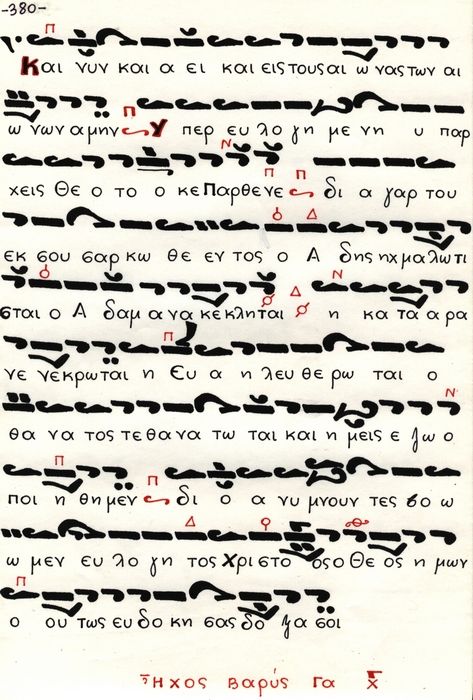 -380-
Και νυν και α ει και εις τους αι ω νας των αι
ω νων α μην Υ περ ευ λο γη με νη υ παρ
χεις Θε ο το ο κε Παρθενε δι α γαρ του
εκ σου σαρ κω θε εν τος ο Α δης ηχ μα λω τι
σται ο Α δαμ α να κε κληται η κα τα α ρα
νε νε κρω ται η Ευ α η λευ θε ρω ται ο
θα να τος τε θα να τω ται και η μεις ε ζω ο
ποι η θη μεν δι ο α νυ μνουν τες βο ω
ω μεν ευ λο γη τος Χρι στο ος ο Θε ος η μων
ο ου τως ευ δο κη σας δο ξα σοι
Ήχος βαρύς Γα